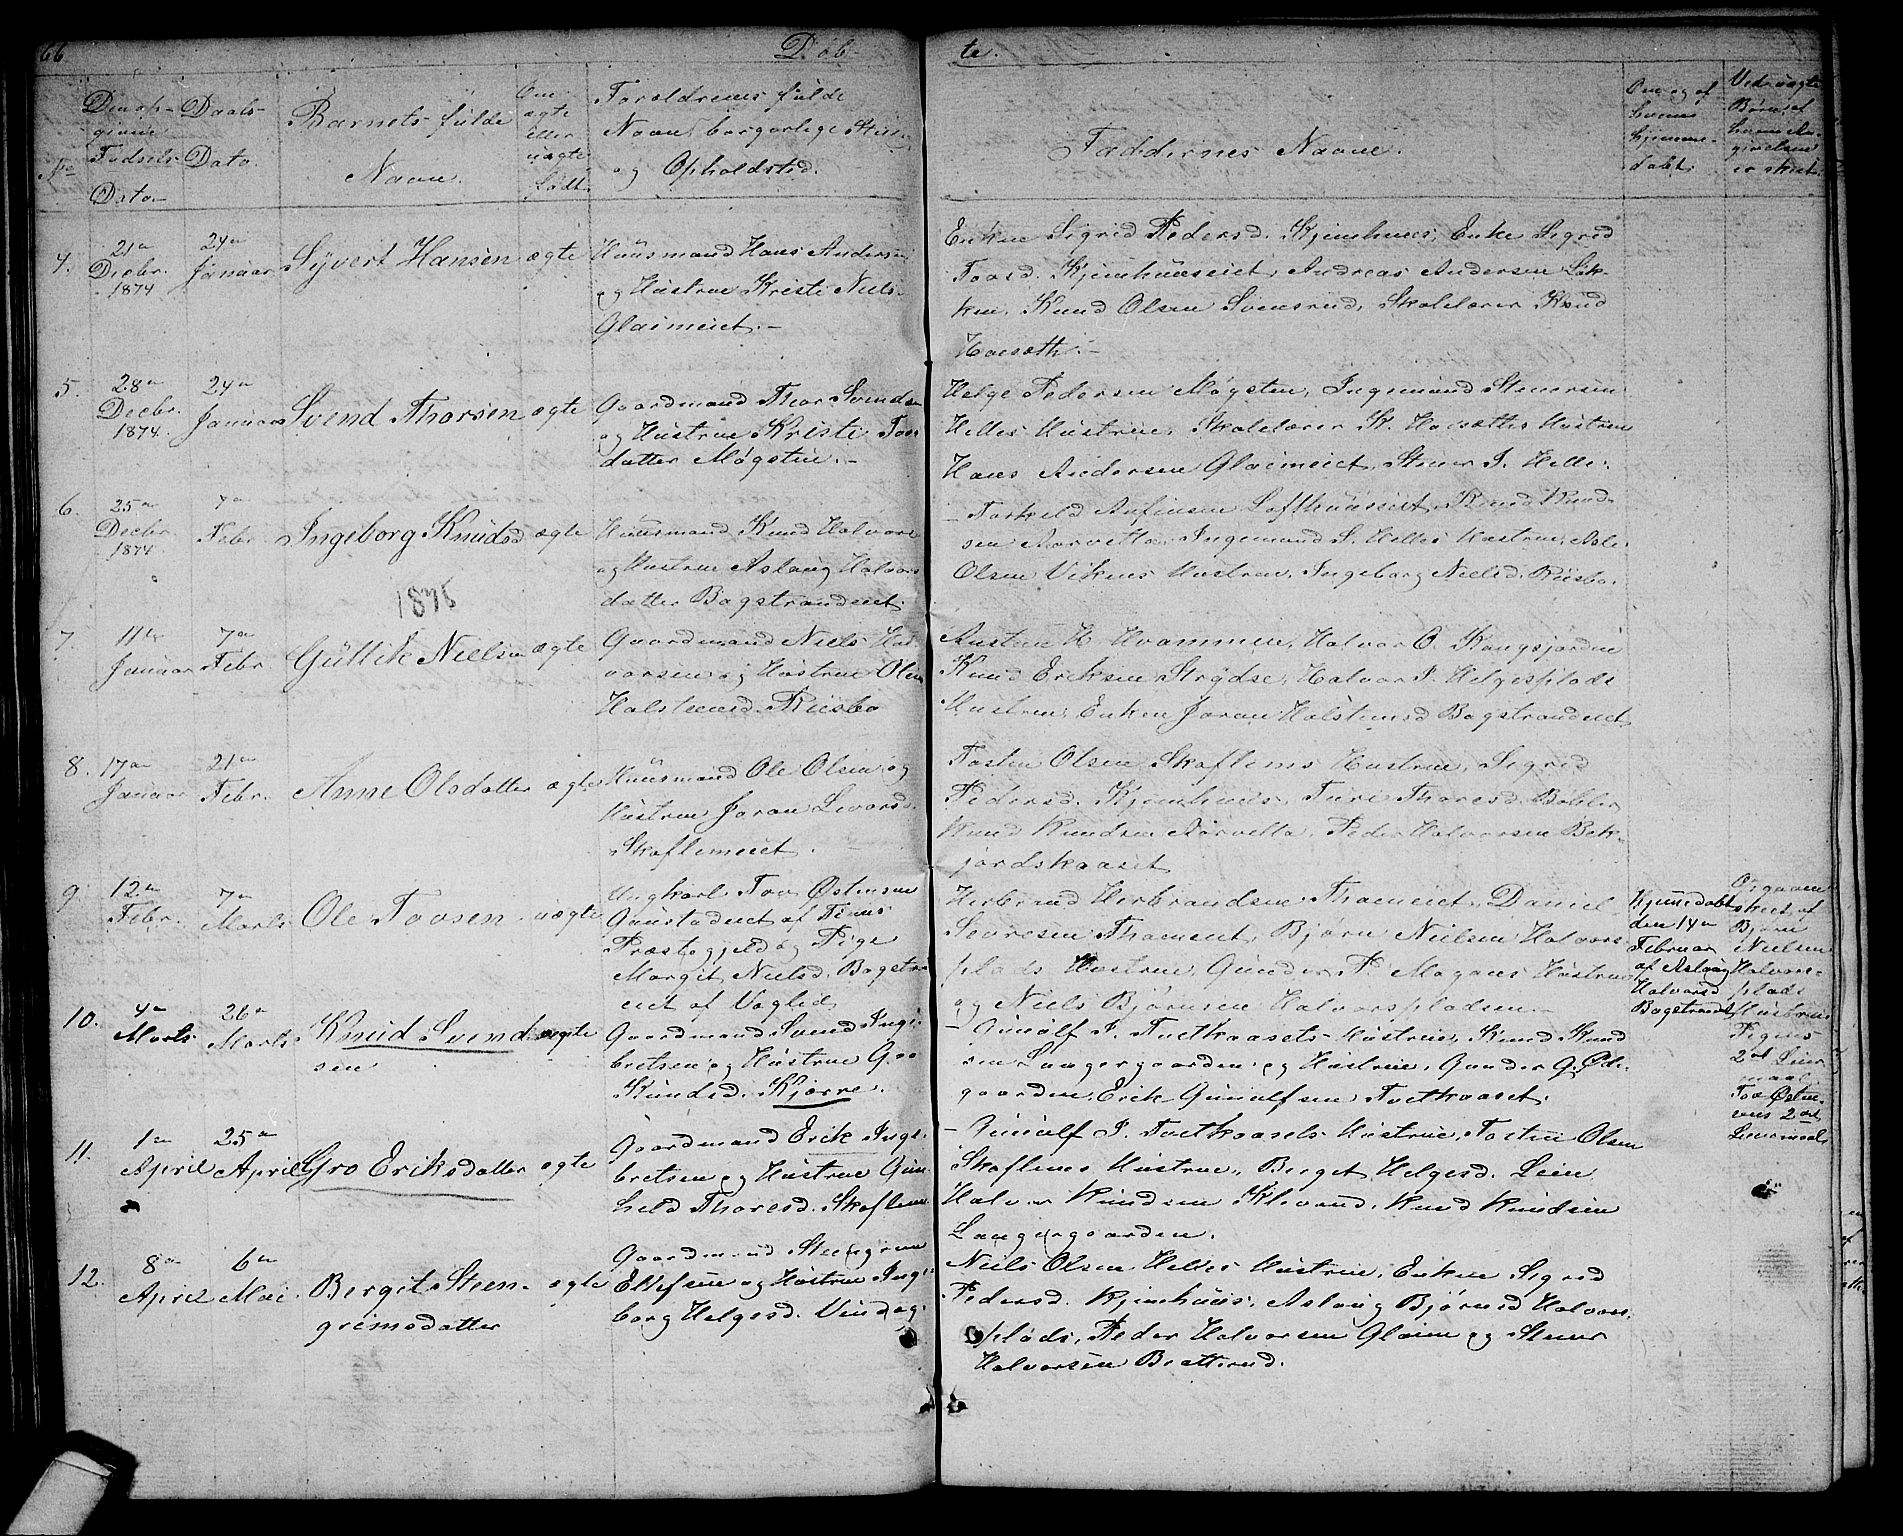 66
Døb-
te.
No
Den op-
givne
Fødsels-
Dato.
Daabs-
Dato.
Barnets fulde
Navn.
Om
ægte
eller
uægte
født.
Forældrenes fulde
Navn, borgerlige Stilling
og Opholdsted.
Faddernes Navne.
Om og af
hvem
hjemme-
døbt.
Ved uægte
Børn, af
hvem An-
givelsen
er skeet.
4.
21de
Decbr.
1874
24de
Januar
Syvert Hansen
ægte
Huusmand Hans Anders
og Hustrue Kristi Niels-
Glaimeiet.-
Enken Sigrid Pedersd. Kjemhuus, Enke Sigrid
Toosd. Kjemhuuseiet, Andreas Andersen Lik-
ken, Knud Olsen Svensrud, Skolelærer Knud
Hovsæth.-
5.
28de
Decbr.
1874.
24de
Januar
Svend Thorsen
ægte
Gaardmand Thor Svendsen
og Hustrue Kristi Too
datter Møgsten.-
Helge Pedersen Møgsten, Ingemund Steenersen
Helles Hustrue, Skolelærer K. Hovsæths Hustrue
Hans Andersen Glaimeiet, Steener I. Helle.
6.
25de
Decbr.
1874.
7de
Febr.
Ingeborg Knudsd
ægte
Huusmand Knud Halvors
og Hustrue Aslaug Halvors
datter Bagstrandeiet.
- Torkeld Anfinsen Lofthuuseiet, Knud Knud-
sen Aarvelta, Ingemund S. Helles Hustrue, Asle
Olsen Vikens Hustrue, Ingeborg Nielsd. Riisbø.
1875
7.
11te
Januar
7de
Febr.
Gullik Nielsen
ægte
Gaardmand Niels Hal
vorsen og Hustrue Olea
Halsteensd. Riisbø
Austen H. Hvammen, Halvor O. Kongsjorden
Knud Eriksen Strydse, Halvor I. Helgesplads
Hustrue, Enken Joran Halstensd Bagstrandeiet
8.
17de
Januar
21de
Febr.
Anne Olsdatter
ægte
Huusmand Ole Olsen og
Hustrue Joran Sevorsd.
Skaflemeiet.
Tosten Olsen Skaflems Hustrue, Sigrid
Pedersd. Kjemhuus, Turi Thoresd. Bøhler
Knud Knudsen Aarvelta, Peder Halvorsen Bek-
jordskaaset
9.
12te
Febr.
7de
Marts
Ole Tovsen
uægte
Ungkarl Tov Østensen
Gaustadeiet af Tinns
Præstegjeld og Pige
Margit Nielsd. Bagstrand
eiet af Vegled
Herbrand Herbrandsen Thoeneiet, Daniel
Sevresen Thoeneiet, Bjørn Nielsen Halvors-
plads Hustrue, Gunder P. Mogens Hustrue
og Niels Bjørnsen Halvorspladsen.-
Hjemedøbt
den 14de
Februar
af Aslaug
Halvorsd
Bagstrandei
Opgaven
skeet af
Bjørn
Nielsen
Halvors-
plads
Hustrue
Pigens
2det Leier
maal
Tov Østen-
sens 2det
Leiermaal.
10.
4de
Marts.
26de
Marts.
Knud Svend-
sen
ægte
Gaardmand Svend Ingi-
bretsen og Hustrue Gro
Knudsd. Kjørre.
- Gunulf I. Tvetkaasets Hustrue, Knud Knud
sen Langergaarden og Hustrue, Gunder G. Øde-
gaarden, Erik Gunulfsen Tvetkaaset.
11.
1de
April
25de
April
Gro Eriksdatter
ægte
Gaardmand Erik Inge-
bretsen og Hustrue Gun-
hild Thoresd. Skaflem.
- Gunulf I. Tvetkaasets Hustrue, Tosten Olsen
Skaflems Hustrue, Berget Helgesd. Leien
Halvor Knudsen Klevand, Knud Knudsen
Langergaarden.
12.
8de
April
6te
Mai
Bergit Steen-
grimsdatter
ægte
Gaardmand Steengrim
Ellefsen og Hustrue Inge-
borg Helgesd. Vindeg.
Niels Olsen Helles Hustrue, Enken Sigrid
Pedersd. Kjemhuus, Aslaug Bjørnsd Halvors-
plads, Peder Halvorsen Glaim og Steener
Halvorsen Bratterud.